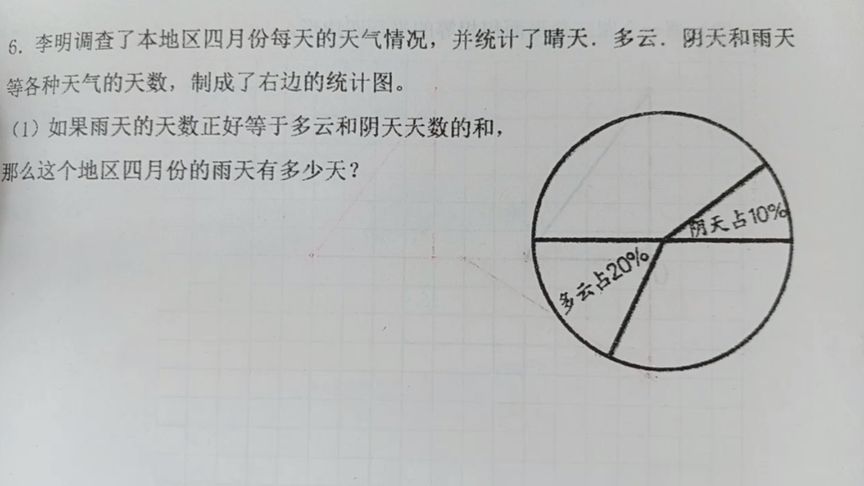 6. 李明调查了本地区四月份每天的天气情况，并统计了晴天．多云．阴天和雨天
等各种天气的天数，制成了右边的统计图。
（1）如果雨天的天数正好等于多云和阴天天数的和，
那么这个地区四月份的雨天有多少天？
阴天占10%
多云占20%